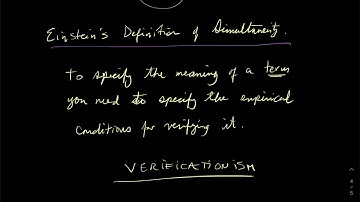 Einstein's Definition of Simultaneity.
To specify the meaning of a term
you need to specify the empirical
conditions for verifying it.
VERIFICATIONISM